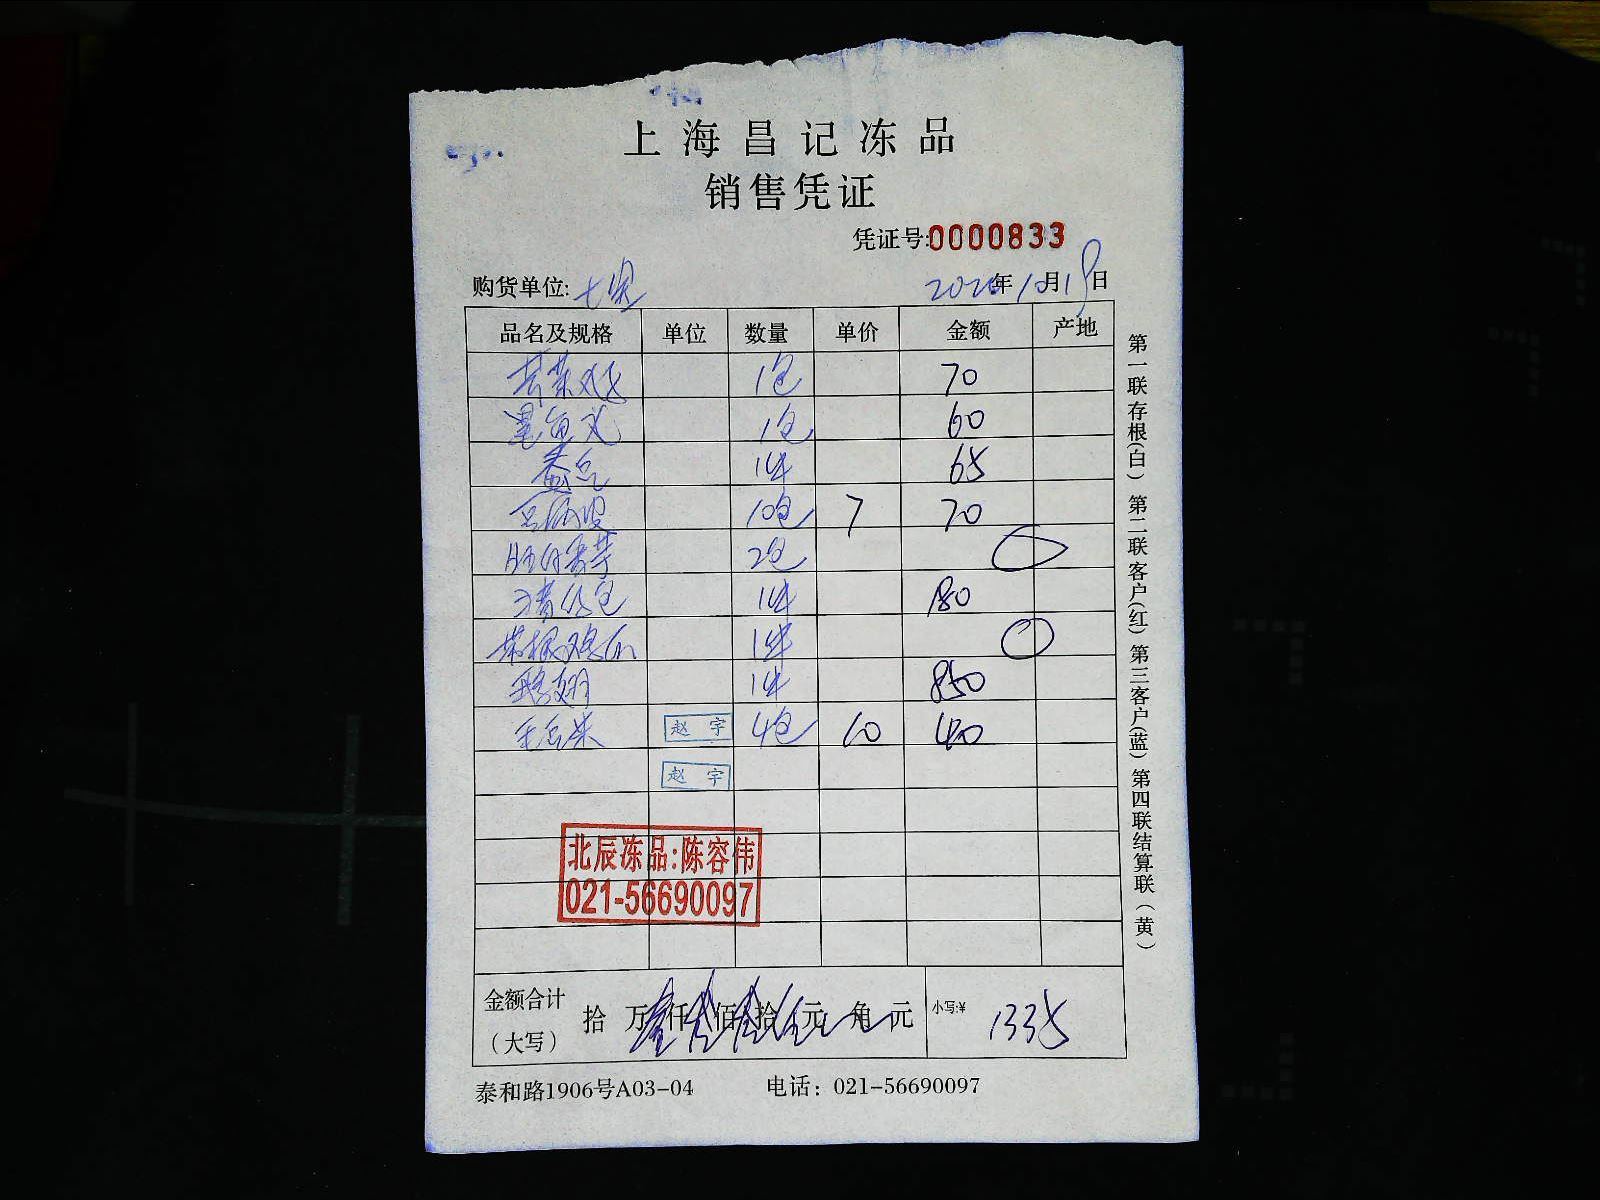 上海昌记冻品
销售凭证
凭证号:0000833
购货单位: 2020年10月19日
品名及规格 单位 数量 单价 金额 产地
1包 70
墨鱼丸 1包 60
1件 65
10包 7 70
2包
1件 180
1件
1件 850
毛豆米 赵宇 4包 10 40
赵宇
北辰冻品:陈容伟
021-56690097
金额合计(大写) 拾 万 仟 佰 拾 元 角 元 小写:¥ 1335
泰和路1906号A03-04 电话：021-56690097
第一联存根(白) 第二联客户(红) 第三客户(蓝) 第四联结算联(黄)